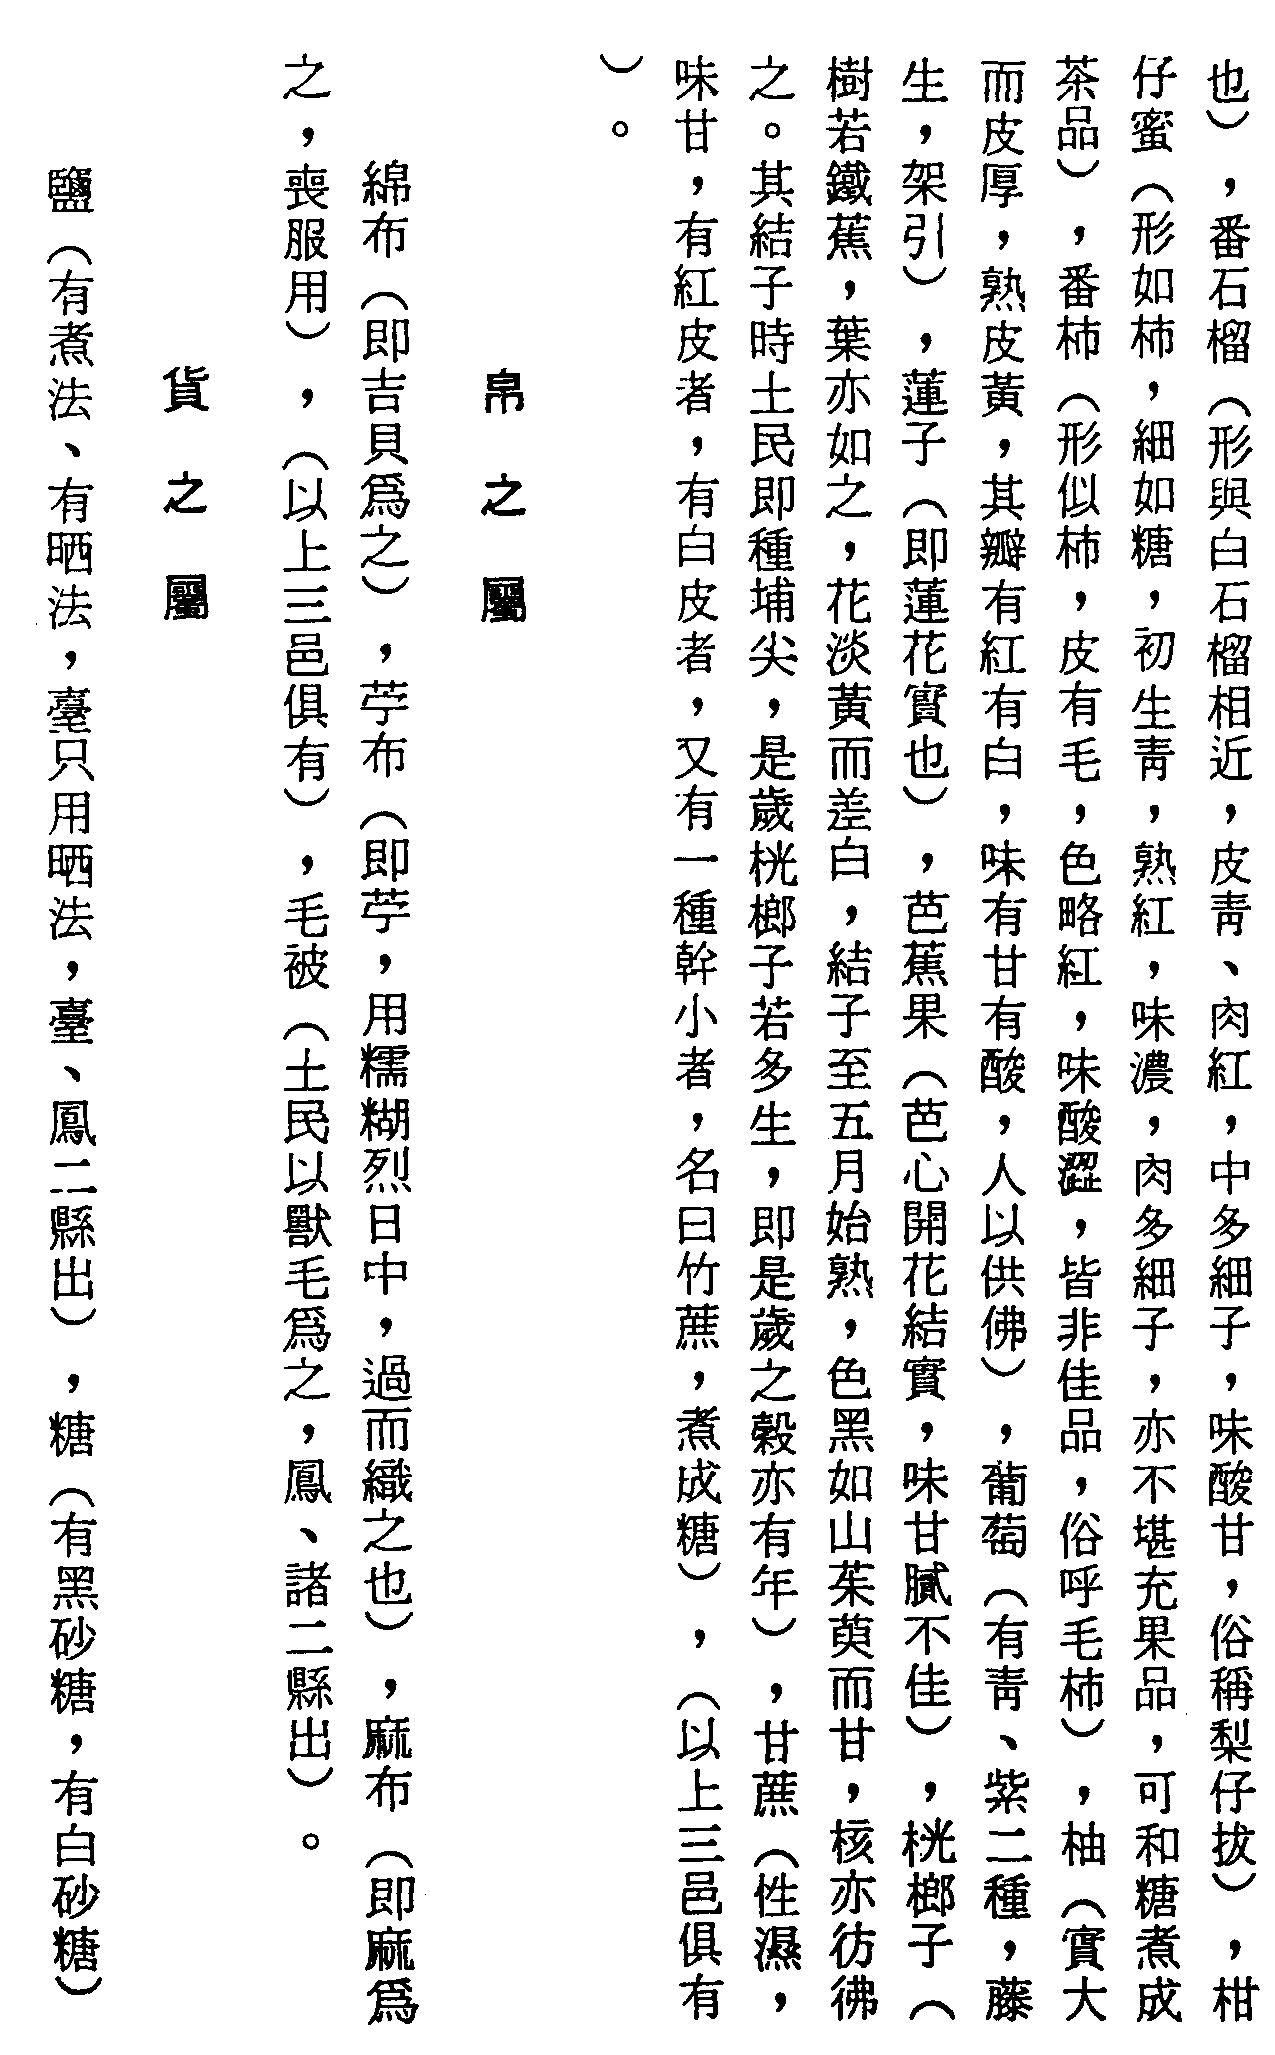 也），番石榴（形與白石榴相近，皮靑、肉紅，中多細子，味酸甘，俗稱梨仔拔），柑
仔蜜（形如柿，細如糖，初生靑，熟紅，味濃，肉多細子，亦不堪充果品，可和糖煮成
茶品），番柿（形似柿，皮有毛，色略紅，味酸澀，皆非佳品，俗呼毛柿），柚（實大
而皮厚，熟皮黃，其瓣有紅有白，味有甘有酸，人以供佛），葡萄（有靑、紫二種，藤
生，架引），蓮子（即蓮花實也），芭蕉果（芭心開花結實，味甘膩不佳），桄榔子（
樹若鐵蕉，葉亦如之，花淡黃而差白，結子至五月始熟，色黑如山茱萸而甘，核亦彷彿
之。其結子時土民即種埔尖，是歲桄榔子若多生，即是歲之穀亦有年），甘蔗（性濕，
味甘，有紅皮者，有白皮者，又有一種幹小者，名曰竹蔗，煮成糖），（以上三邑俱有
）。
帛之屬
綿布（即吉貝爲之），苧布（即苧，用糯糊烈日中，過而織之也），麻布（即麻爲
之，喪服用），（以上三邑俱有），毛被（土民以獸毛爲之，鳳、諸二縣出）。
貨之屬
鹽（有煮法、有晒法，臺只用晒法，臺、鳳二縣出），糖（有黑砂糖，有白砂糖）